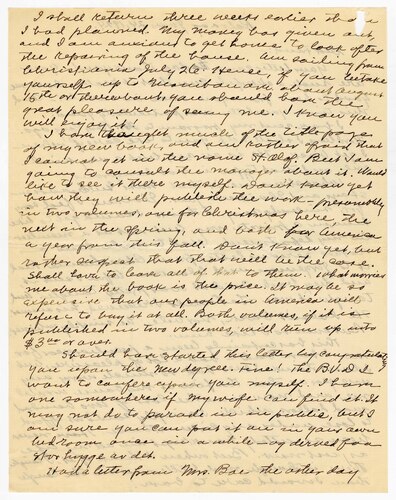 I shall return three weeks earlier than
I had planned. My money has given out,
and I am anxious to get home to look after
the repairing of the house. Am sailing from
Christiania July 26. Hence, if you betake
yourself up to about August
15th or thereabouts, you should have the
great pleasure of seeing me. I know you
will enjoy it!
I have thought much of the title page
of my new book, and am rather afraid that
I cannot get in the name St. Olaf. But I am
going to consult the manager about it. Would
like to see it there myself. Don't know yet
how they will publish the work – presumably
in two volumes, one for Christmas here, the
next in the spring, and both for America
a year from this fall. Don't know yet, but
rather suspect that that will be the case.
Shall have to leave all of that to them. What worries
me about the book is the price. It may be so
expensive that our people in America will
refuse to buy it at all. Both volumes, if it is
published in two volumes, will run up into
$3.00 or over.
Should have started this letter by congratulating
you upon the new degree. Fine! The B.V.D. I
want to confer upon you myself. I have
one somewhere if my wife can find it. It
may not do to parade in in public, but I
am sure you can put it on in your own
bedroom once in a while – og derved faa
stor hygge av det.
Had a letter from Mrs. Boe the other day